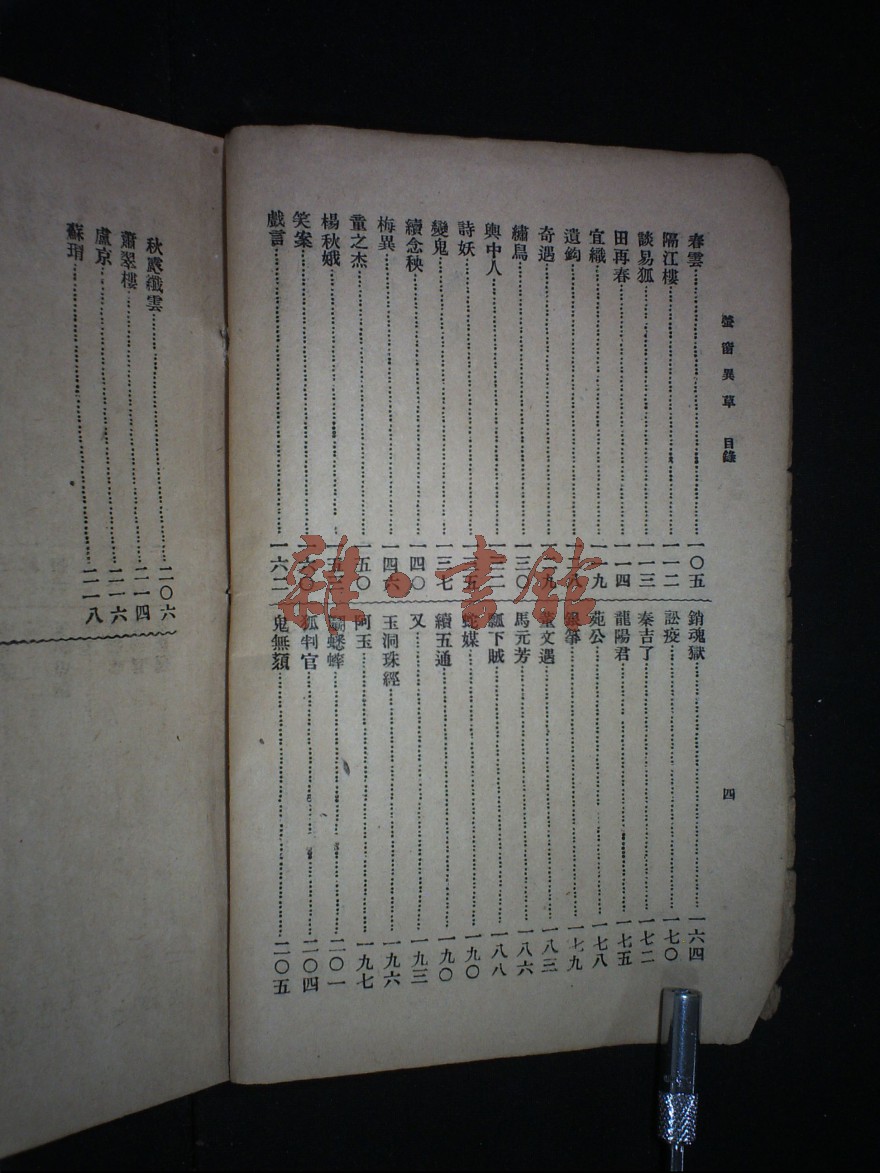 螢窗異草 目錄
四
春雲……一〇五
隔江樓……一一二
談易狐……一一三
田再春……一一四
宜織……一一九
遺鈎
奇遇
繡鳥……一三〇
輿中人
詩妖
變鬼……一三七
續念秧……一四〇
梅異……一四六
童之杰……一五〇
楊秋娥
笑案
戲言……一六二
銷魂獄……一六四
訟疫……一七〇
秦吉了……一七二
龍陽君……一七五
苑公……一七八
銀箏……一七九
董文遇……一八三
馬元芳……一八六
瓢下賊……一八八
蛇媒……一九〇
續五通……一九〇
又……一九三
玉洞珠經……一九六
阿玉……一九七
鬭蟋蟀……二〇一
狐判官……二〇四
鬼無頦……二〇五
秋露纖雲……二〇六
蕭翠樓……二一四
盧京……二一六
蘇瑁……二一八
雜·書館